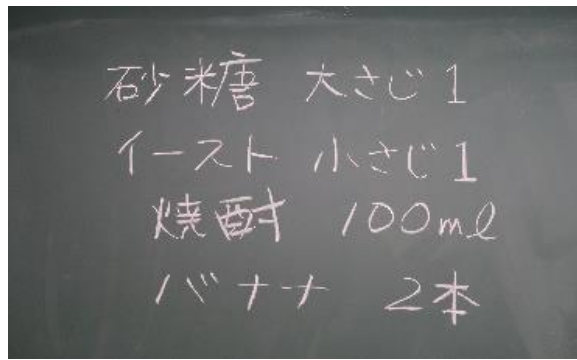 砂糖 大さじ1
イースト 小さじ1
焼酎 100ml
バナナ 2本